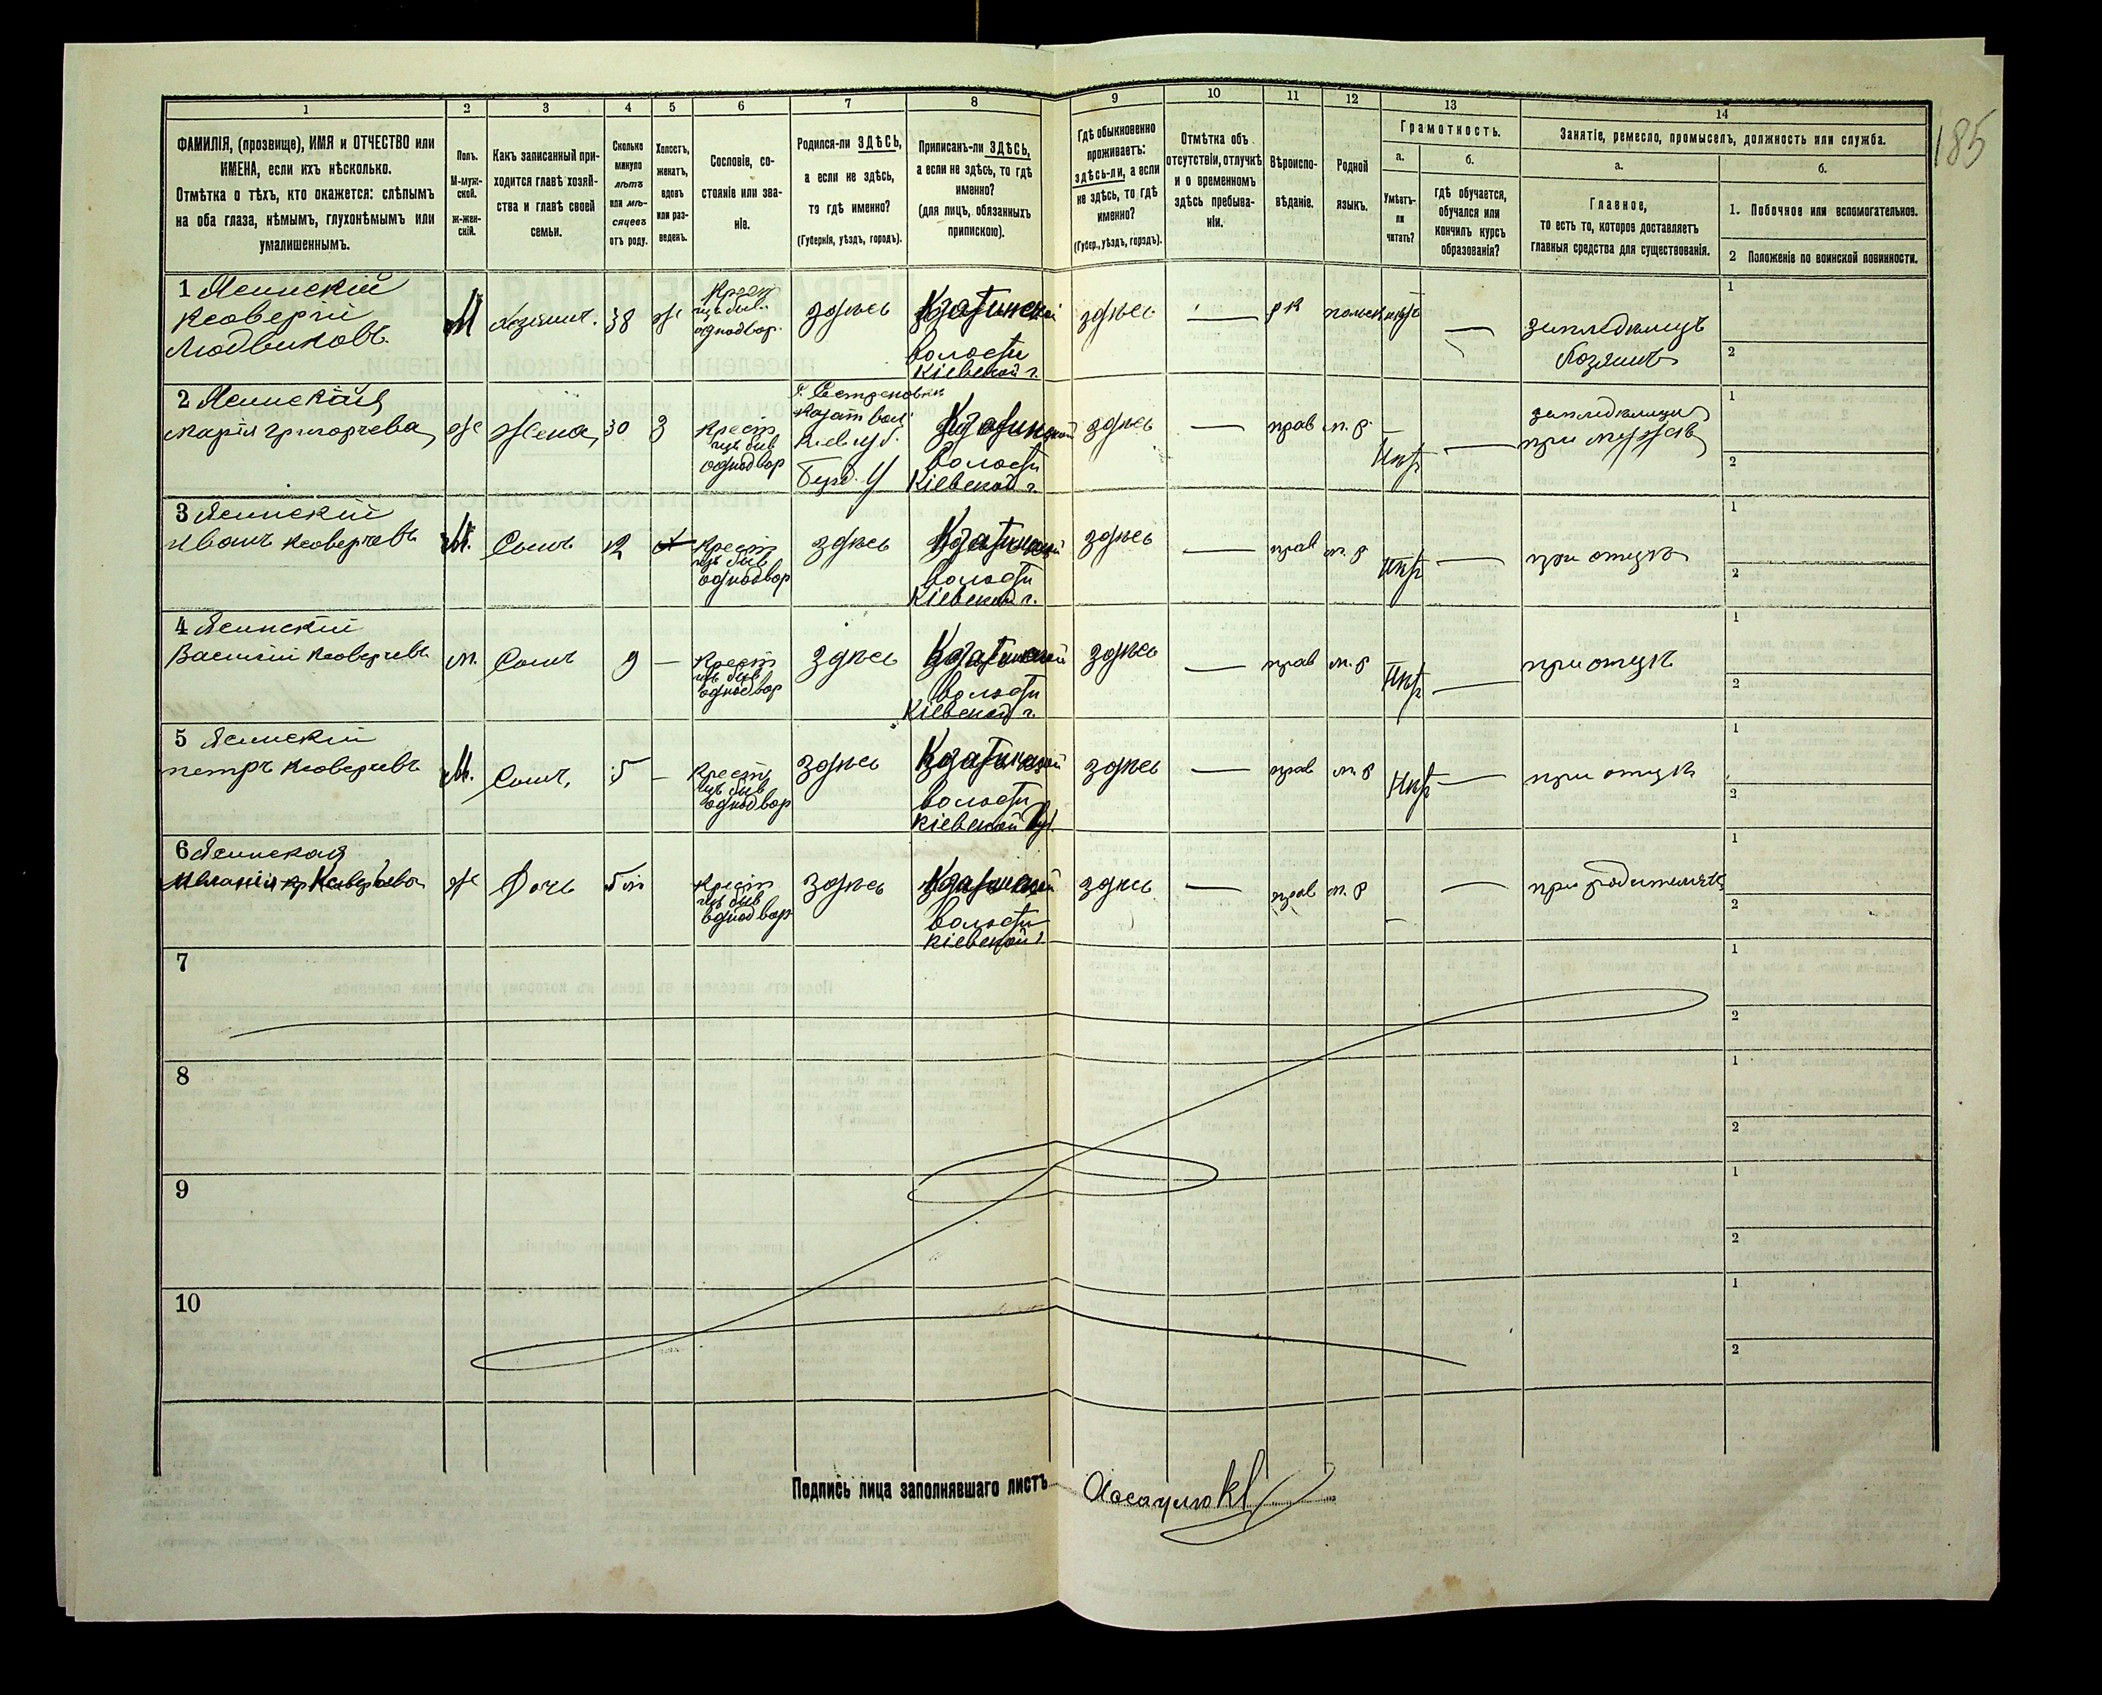 185
1 2 3 4 5 6 7 8 9 10 11 12 13 14
ФАМИЛІЯ, (прозвище), ИМЯ и ОТЧЕСТВО или
ИМЕНА, если ихъ нѣсколько.
Отмѣтка о тѣхъ, кто окажется: слѣпымъ
на оба глаза, нѣмымъ, глухонѣмымъ или
умалишеннымъ.
Полъ.
М-муж-
ской.
Ж-жен-
скій.
Какъ записанный при-
ходится главѣ хозяй-
ства и главѣ своей
семьи.
Сколько
минуло
лѣтъ
или мѣ-
сяцевъ
отъ роду.
Холостъ,
женатъ,
вдовъ
или раз-
веденъ.
Сословіе, со-
стояніе или зва-
ніе.
Родился-ли ЗДѢСЬ,
а если не здѣсь,
то гдѣ именно?
(Губернія, уѣздъ, городъ).
Приписанъ-ли ЗДѢСЬ,
а если не здѣсь, то гдѣ
именно?
(для лицъ, обязанныхъ
припискою).
Гдѣ обыкновенно
проживаетъ:
здѣсь-ли, а если
не здѣсь, то гдѣ
именно?
(Губер., уѣздъ, городъ).
Отмѣтка объ
отсутствіи, отлучкѣ
и о временномъ
здѣсь пребыва-
ніи.
Вѣроиспо-
вѣданіе.
Родной
языкъ.
Грамотность.
а.
Умѣетъ-
ли
читать?
б.
гдѣ обучается,
обучался или
кончилъ курсъ
образованія?
Занятіе, ремесло, промыселъ, должность или служба.
а.
Главное,
то есть то, которое доставляетъ
главныя средства для существованія.
б.
1. Побочное или вспомогательное.
2 Положеніе по воинской повинности.
1 Ясинскій
Ксаверій
Людвиковъ.
М
Хозяинъ.
38
ж
Крест
изъ быв.
однодвор.
здѣсь
волости
Кіевской г.
здѣсь
—
р к
польск
—
земледѣлецъ
Хозяинъ
1
2
2 Ясинская
Марія Григорьева
Ж
Жена
30
З
Крест
изъ быв
однодвор
Кіев. губ.
волости
Кіевской г.
здѣсь
—
прав
м. р.
—
земледѣлица
при мужѣ
1
2
3 Ясинскій
Иванъ Ксаверіевъ
М.
Сынъ
12
Крест
изъ быв
однодвор
здѣсь
волости
Кіевской г.
здѣсь
—
прав
м. р
—
при отцѣ
1
2
4 Ясинскій
Василій Ксаверіевъ
м.
Сынъ
9
—
Крест
изъ быв
однодвор
здѣсь
волости
Кіевской г.
здѣсь
—
прав
м. р
—
при отцѣ
1
2
5 Ясинскій
Петръ Ксаверіевъ
М.
Сынъ,
5
—
Крест
изъ быв
однодвор
здѣсь
волости
Кіевской Губ.
здѣсь
—
прав
м. р
—
при отцѣ
1
2
6 Ясинская
Меланія Ксаверіева
ж
Дочь
Крест
изъ быв
однодвор
здѣсь
волости
Кіевской г.
здѣсь
—
прав
м. р
—
при родителяхъ
1
2
7
1
2
8
1
2
9
1
2
10
1
2
Подпись лица заполнявшаго листъ